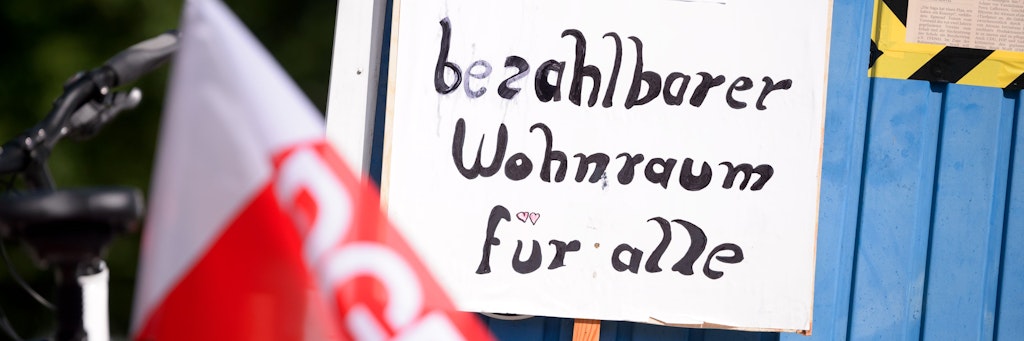 bezahlbarer
Wohnraum
für alle